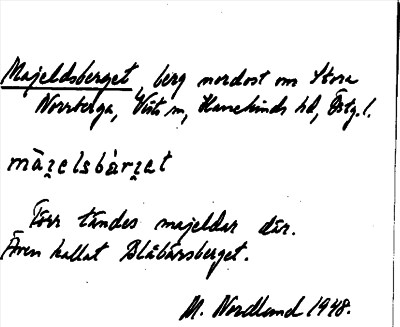 Majeldsberget, berg nordost om Stora
Norrberga, Vists sn, Hanekinds hd, Östg. l.
màʒ̣elsbàrʒ̣et
Förr tändes majeldar där.
Även kallat Blåbärsberget.
M. Nordlund 1948.